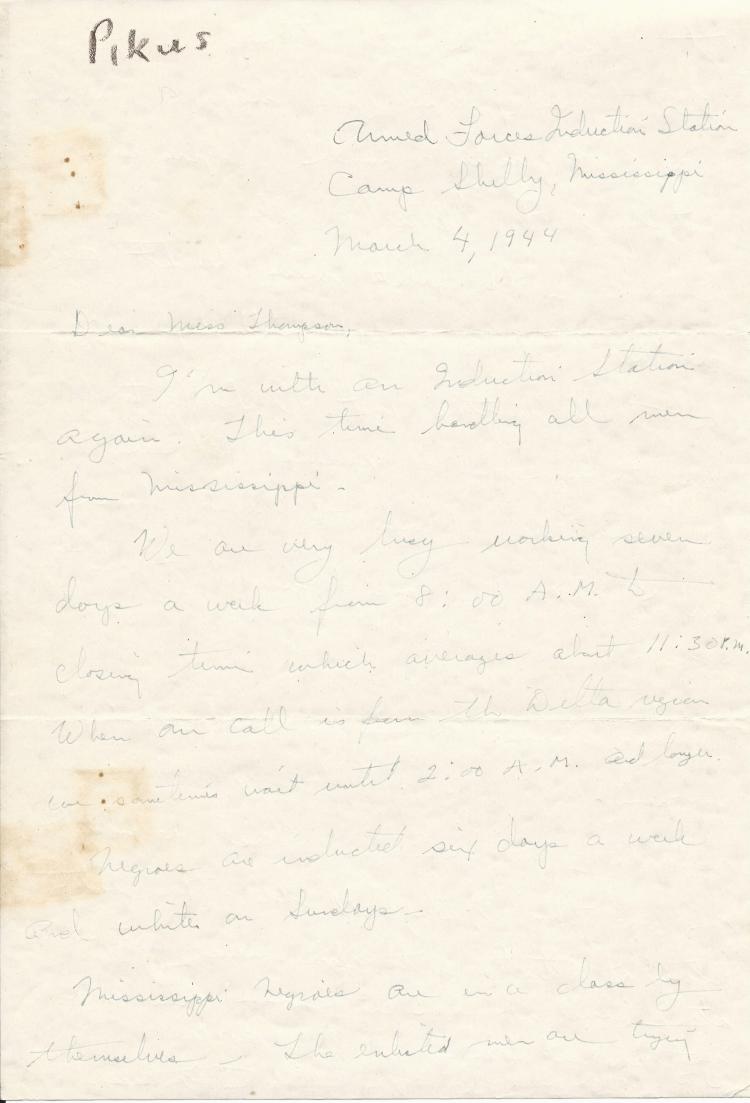 Pikus
Armed Forces Induction Station
Camp Shelby, Mississippi
March 4, 1944
Dear Miss Thompson,
I'm with an Induction Station
again. This time handling all men
from Mississippi.
We are very busy working seven
days a week from 8:00 A.M. to
closing time which averages about 11:30 P.M.
When our call is from the Delta region
we sometimes wait until 2:00 A.M. and longer.
Negroes are inducted six days a week
and whites on Sundays.
Mississippi Negroes are in a class by
themselves. The enlisted men are trying